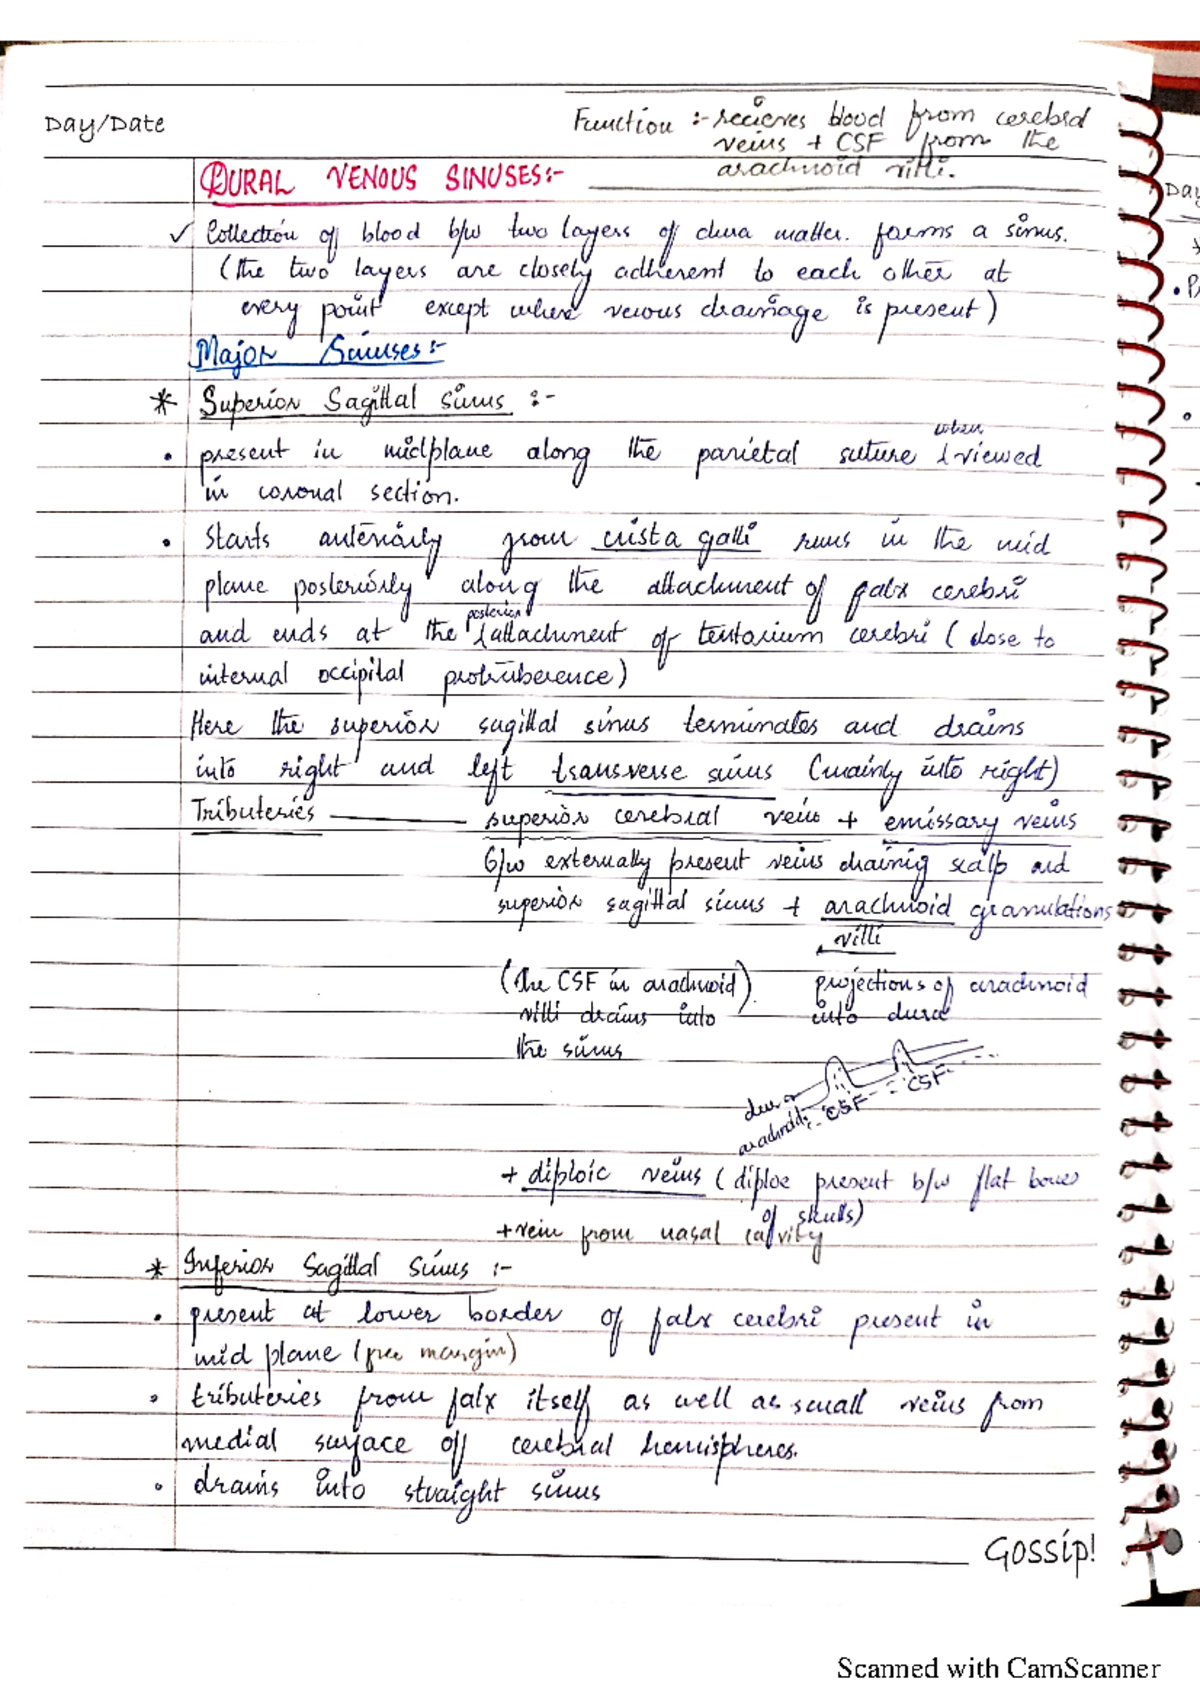 Day/Date
Function :- recieves blood from cerebral
veins + CSF from the
arachnoid villi.
DURAL VENOUS SINUSES:-
✓ Collection of blood b/w two layers of dura matter. forms a sinus.
(the two layers are closely adherent to each other at
every point except where venous drainage is present)
Major Sinuses:-
* Superior Sagittal Sinus :-
• present in midplane along the parietal suture when viewed
in coronal section.
• Starts anteriorly from crista galli runs in the mid
plane posteriorly along the attachment of falx cerebri
and ends at the posterior attachment of tentorium cerebri (close to
internal occipital protruberence)
Here the superior sagittal sinus terminates and drains
into right and left transverse sinus (mainly into right)
Tributeries — superior cerebral vein + emissary veins
b/w externally present veins draining scalp and
superior sagittal sinus + arachnoid granulations
villi
(the CSF in arachnoid) projections of arachnoid
villi drains into into dura
the sinus
dura
arachnoid CSF CSF
+ diploic veins (diploe present b/w flat bones
of skulls)
+ vein from nasal cavity
* Inferior Sagittal Sinus :-
• present at lower border of falx cerebri present in
mid plane (free margin)
• tributeries from falx itself as well as small veins from
medial surface off cerebral hemispheres.
• drains into straight sinus
GOSSip!
Day
• Pr
Scanned with CamScanner